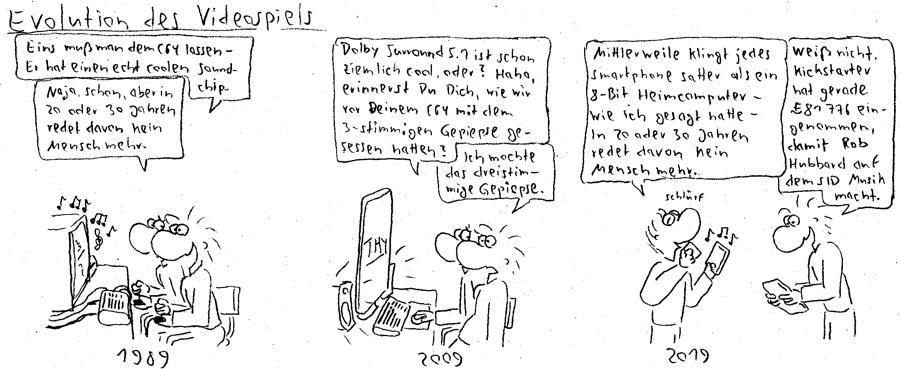 Evolution des Videospiels
Eins muß man dem C64 lassen –
Er hat einen echt coolen Sound-
chip.
Naja, schon, aber in
20 oder 30 Jahren
redet davon kein
Mensch mehr.
1989
Dolby Surround 5.1 ist schon
ziemlich cool, oder? Haha,
erinnerst Du Dich, wie wir
vor Deinem C64 mit dem
3-stimmigen Gepiepse ge-
sessen hatten?
Ich mochte
das dreistim-
mige Gepiepse.
THX
2009
Mittlerweile klingt jedes
Smartphone satter als ein
8-Bit Heimcomputer –
wie ich gesagt hatte –
in 20 oder 30 Jahren
redet davon kein
Mensch mehr.
weiß nicht.
Kickstarter
hat gerade
£81 776 ein-
genommen,
damit Rob
Hubbard auf
dem SID Musik
macht.
schlürf
2019